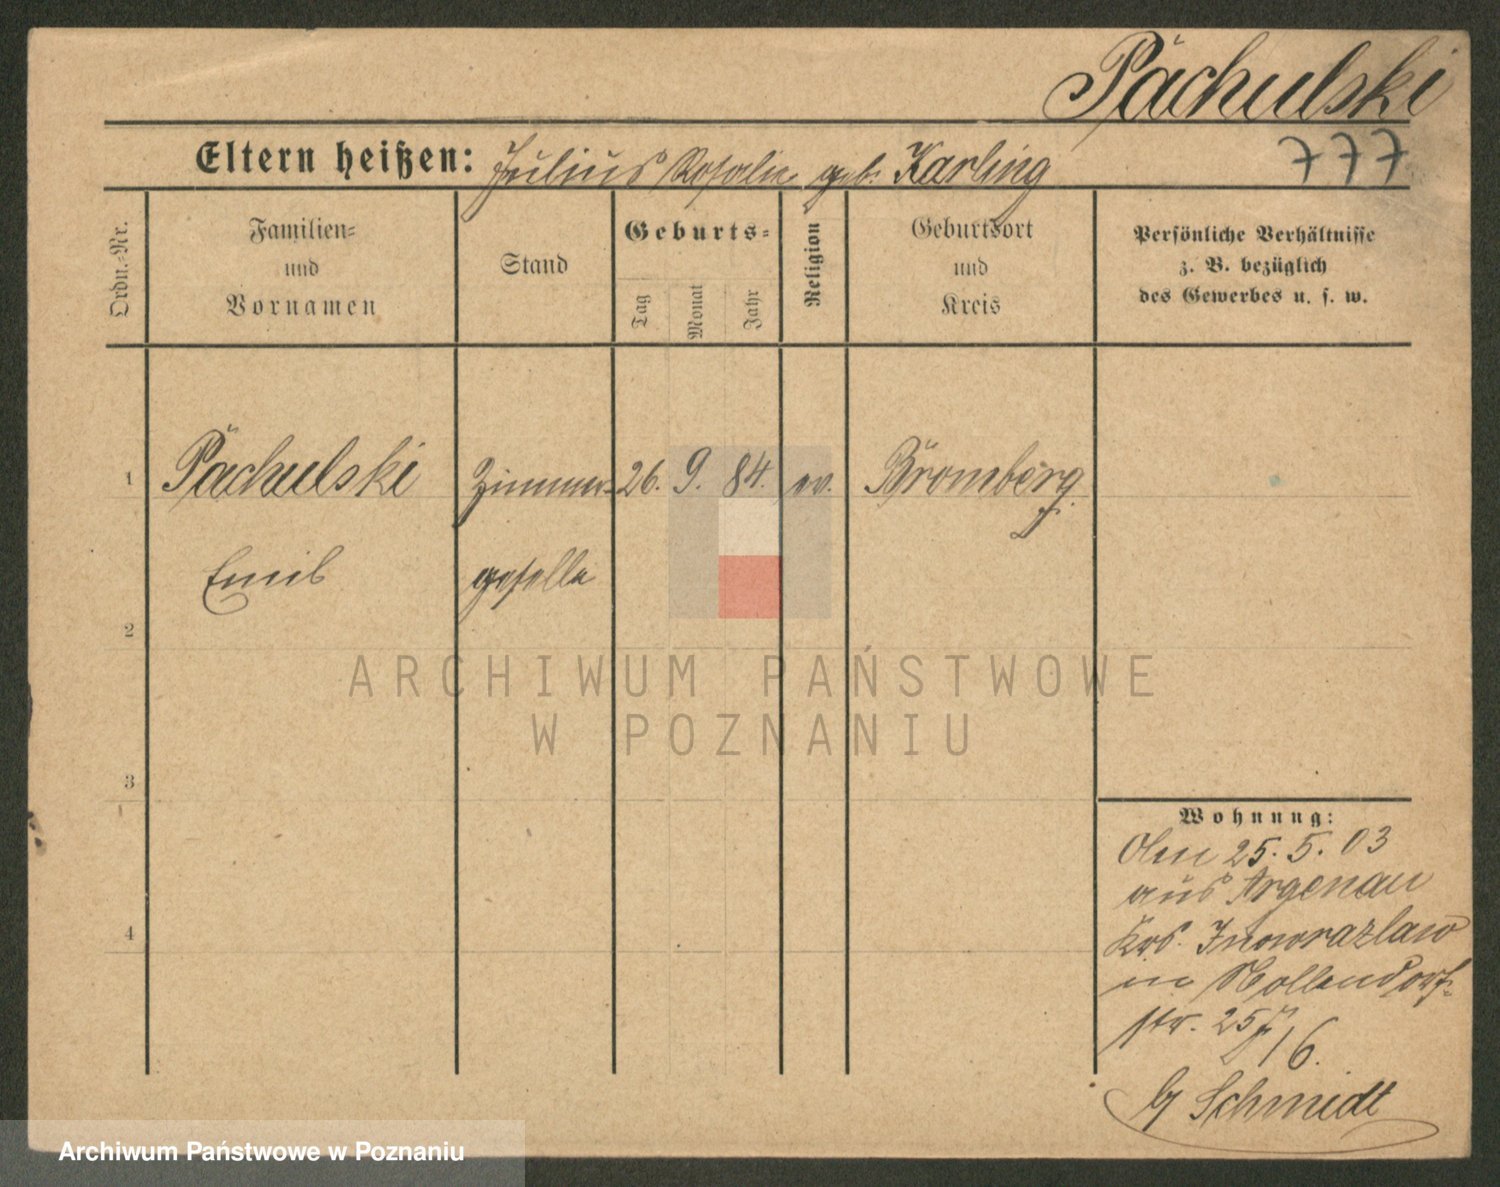 Pächulski
777
Eltern heißen: Julius Rosalie geb. Karling
Ordn.-Nr.
Familien-
und
Vornamen
Stand
Geburts-
Tag
Monat
Jahr
Religion
Geburtsort
und
Kreis
Persönliche Verhältnisse
z. B. bezüglich
des Gewerbes u. s. w.
1 Pächulski Zimmer- 26. 9. 84. ev. Bromberg
Emil geselle
2
3
4
ARCHIWUM PAŃSTWOWE
W POZNANIU
Wohnung:
25. 5. 03
aus Argenau
Krs. Inowrazlaw
in Nollendorf-
str. 25
16.
b/ Schmidt
Archiwum Państwowe w Poznaniu